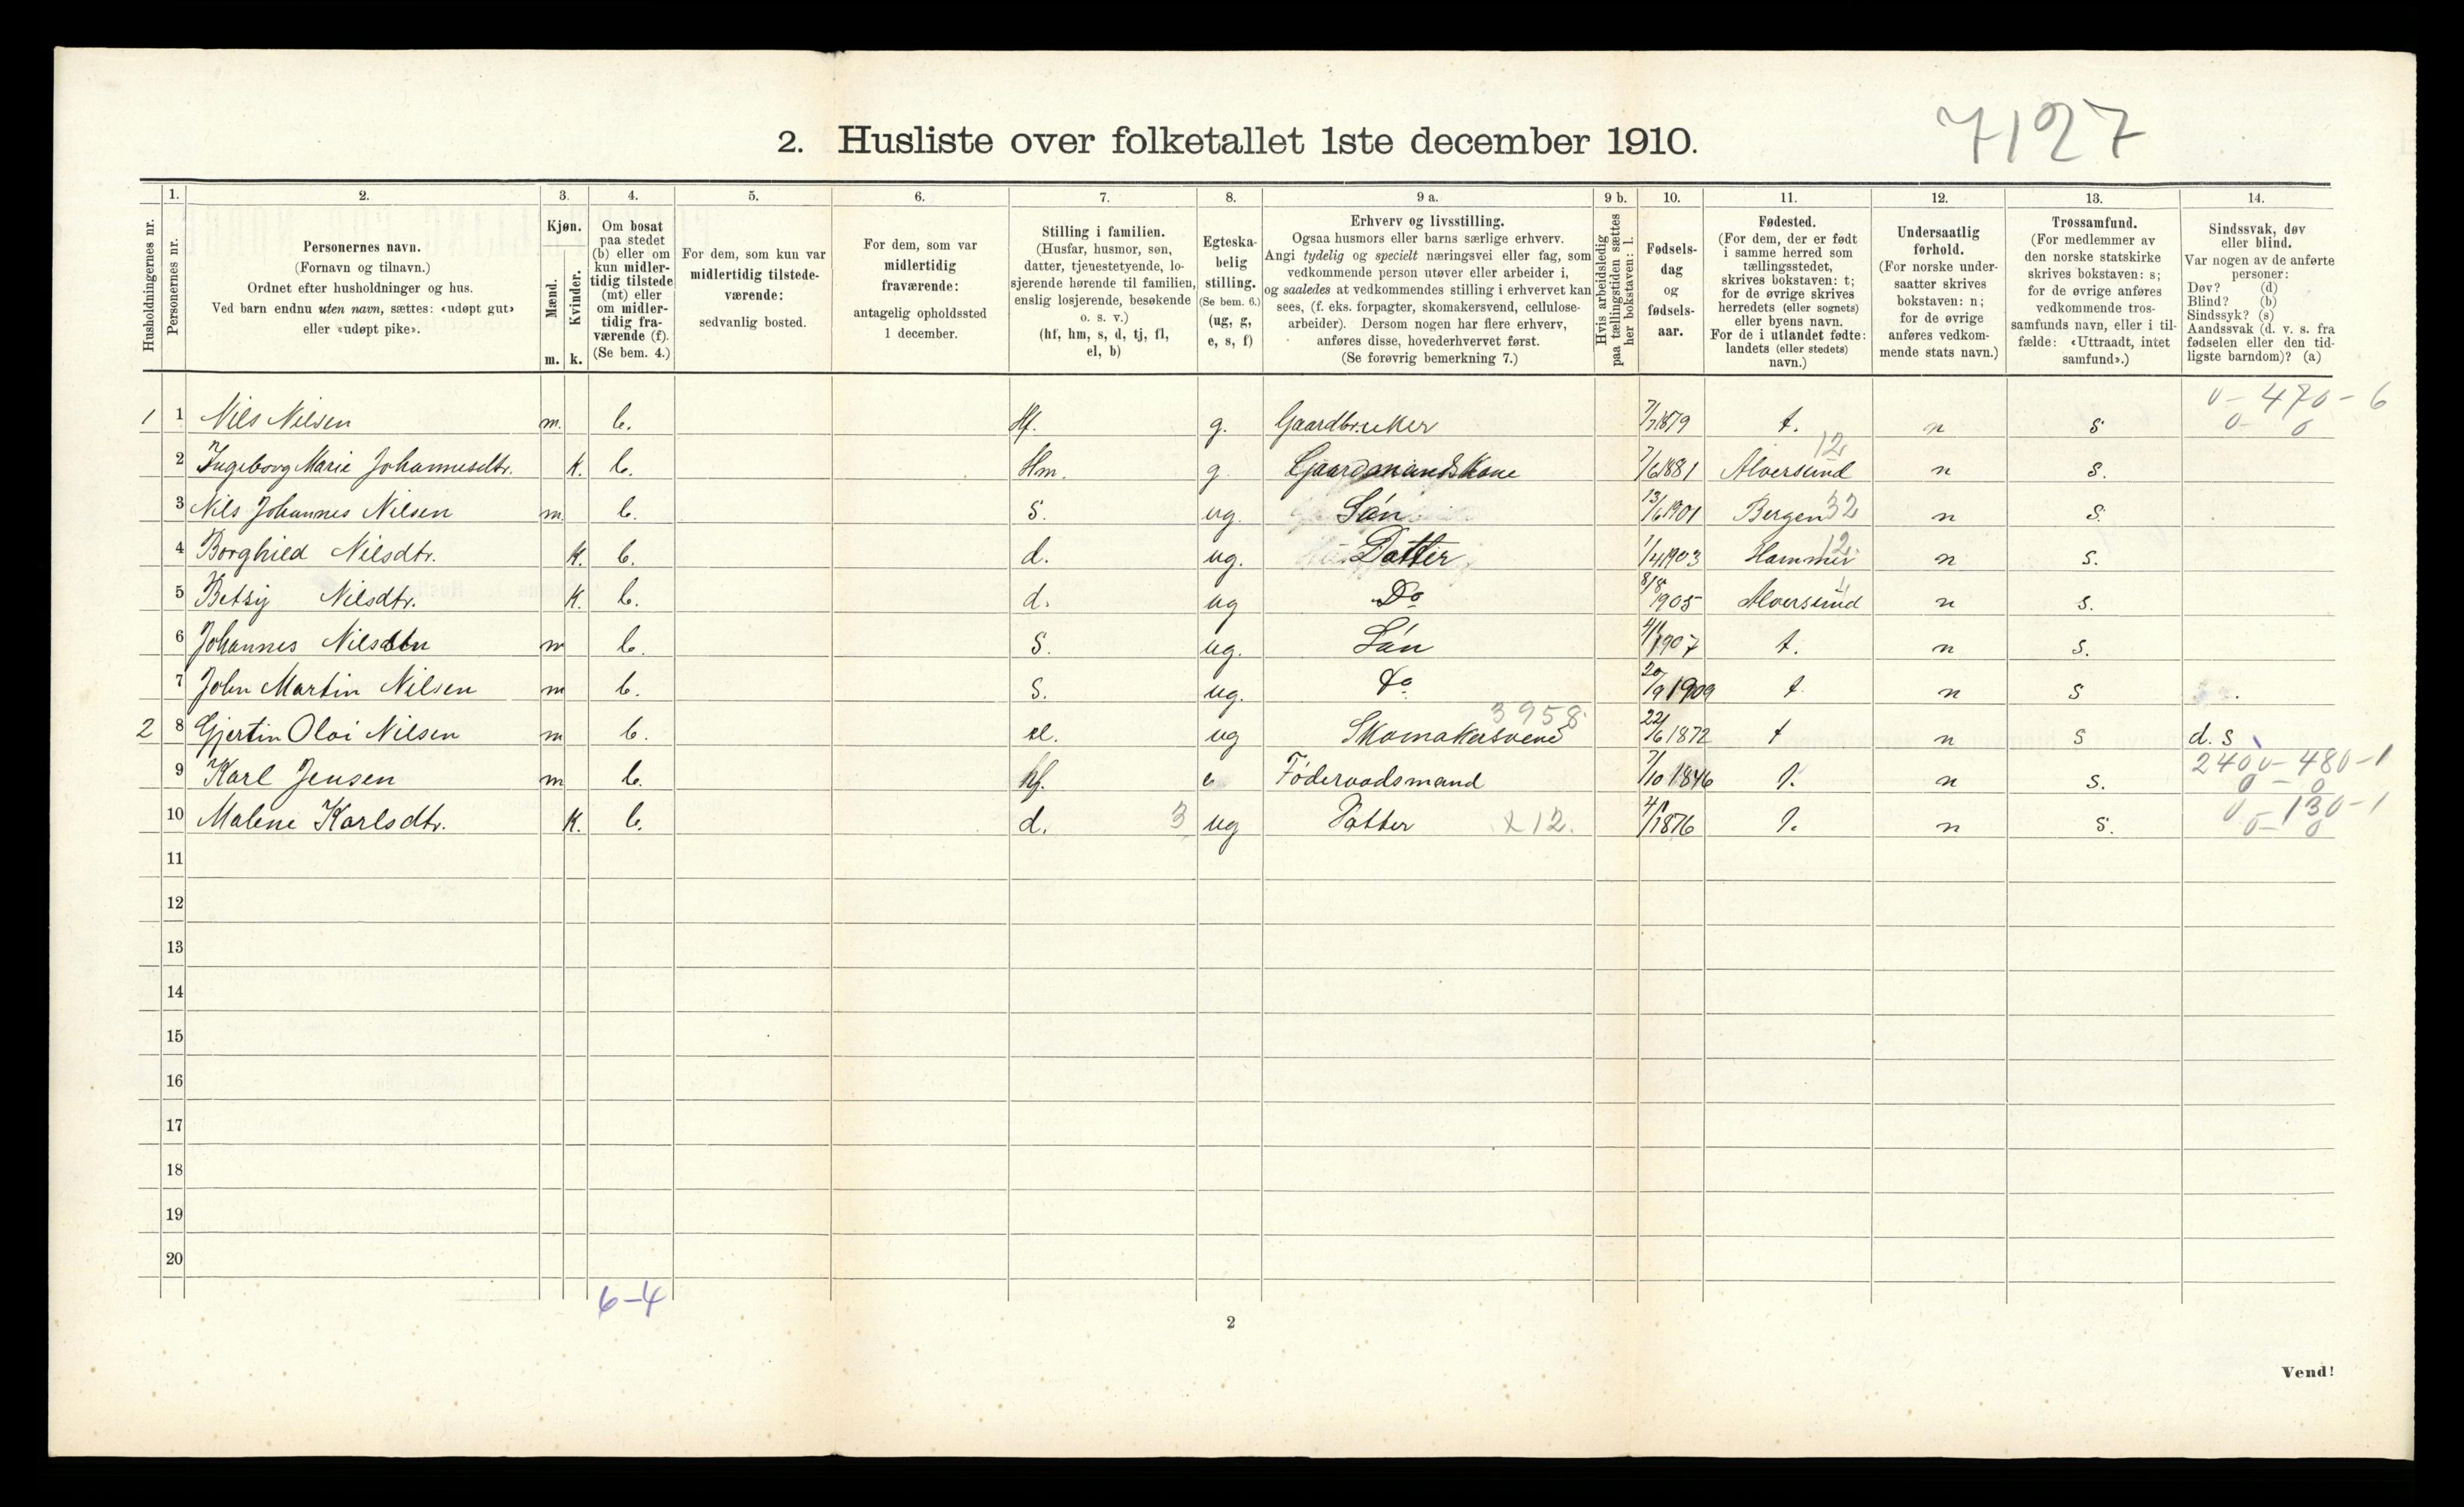 2. Husliste over folketallet 1ste december 1910.
7127
1. 2. 3. 4. 5. 6. 7. 8. 9 a. 9 b. 10. 11. 12. 13. 14.
Husholdningernes nr.
Personernes nr.
Personernes navn.
(Fornavn og tilnavn.)
Ordnet efter husholdninger og hus.
Ved barn endnu uten navn, sættes: «udøpt gut»
eller «udøpt pike».
Kjøn.
Mænd.
Kvinder.
m. k.
Om bosat
paa stedet
(b) eller om
kun midler-
tidig tilstede
(mt) eller
om midler-
tidig fra-
værende (f).
(Se bem. 4.)
For dem, som kun var
midlertidig tilstede-
værende:
sedvanlig bosted.
For dem, som var
midlertidig
fraværende:
antagelig opholdssted
1 december.
Stilling i familien.
(Husfar, husmor, søn,
datter, tjenestetyende, lo-
sjerende hørende til familien,
enslig losjerende, besøkende
o. s. v.)
(hf, hm, s, d, tj, fl,
el, b)
Egteska-
belig
stilling.
(Se bem. 6.)
(ug, g,
e, s, f)
Erhverv og livsstilling.
Ogsaa husmors eller barns særlige erhverv.
Angi tydelig og specielt næringsvei eller fag, som
vedkommende person utøver eller arbeider i,
og saaledes at vedkommendes stilling i erhvervet kan
sees, (f. eks. forpagter, skomakersvend, cellulose-
arbeider). Dersom nogen har flere erhverv,
anføres disse, hovederhvervet først.
(Se forøvrig bemerkning 7.)
Hvis arbeidsledig
paa tællingstiden sættes
her bokstaven: l.
Fødsels-
dag
og
fødsels-
aar.
Fødested.
(For dem, der er født
i samme herred som
tællingsstedet,
skrives bokstaven: t;
for de øvrige skrives
herredets (eller sognets)
eller byens navn.
For de i utlandet fødte:
landets (eller stedets)
navn.)
Undersaatlig
forhold.
(For norske under-
saatter skrives
bokstaven: n;
for de øvrige
anføres vedkom-
mende stats navn.)
Trossamfund.
(For medlemmer av
den norske statskirke
skrives bokstaven: s;
for de øvrige anføres
vedkommende tros-
samfunds navn, eller i til-
fælde: «Uttraadt, intet
samfund».)
Sindssvak, døv
eller blind.
Var nogen av de anførte
personer:
Døv? (d)
Blind? (b)
Sindssyk? (s)
Aandssvak (d. v. s. fra
fødselen eller den tid-
ligste barndom)? (a)
0 - 470 - 6
1 1 Nils Nilsen m. b. Hf. g. Gaardbruker 7/7 1879 t. n s 0 - 0
12
2 Ingeborg Marie Johannesdtr. k. b. Hm. g. Gaardmandskone 7/6 1881 Alversund n s.
3 Nils Johannes Nilsen m. b. s. ug. Sön 13/6 1901 Bergen 32 n s.
12.
4 Borghild Nilsdtr. k. b. d. ug. Datter 1/4 1903 Hammer n s.
5 Betsy Nilsdtr. k. b. d. ug Do 8/8 1905 Alversund n s.
6 Johannes Nilsen m b. s. ug. Sön 4/1 1907 t. n s.
7 John Martin Nilsen m b. s. ug. Do 20/9 1909 t n s
3958
2 8 Gjertin Olai Nilsen m b. el. ug Skomakersvend 22/6 1872 t n s d. s
2400 - 480 - 1
9 Karl Jensen m b. hf. e Föderaadsmand 7/10 1846 t. n s. 0 - 0
0 - 130 - 1
10 Malene Karlsdtr. k. b. d. 3 ug Datter x 12. 4/1 1876 t. n s. 0 - 0
11
12
13
14
15
16
17
18
19
20
6-4
2
Vend!